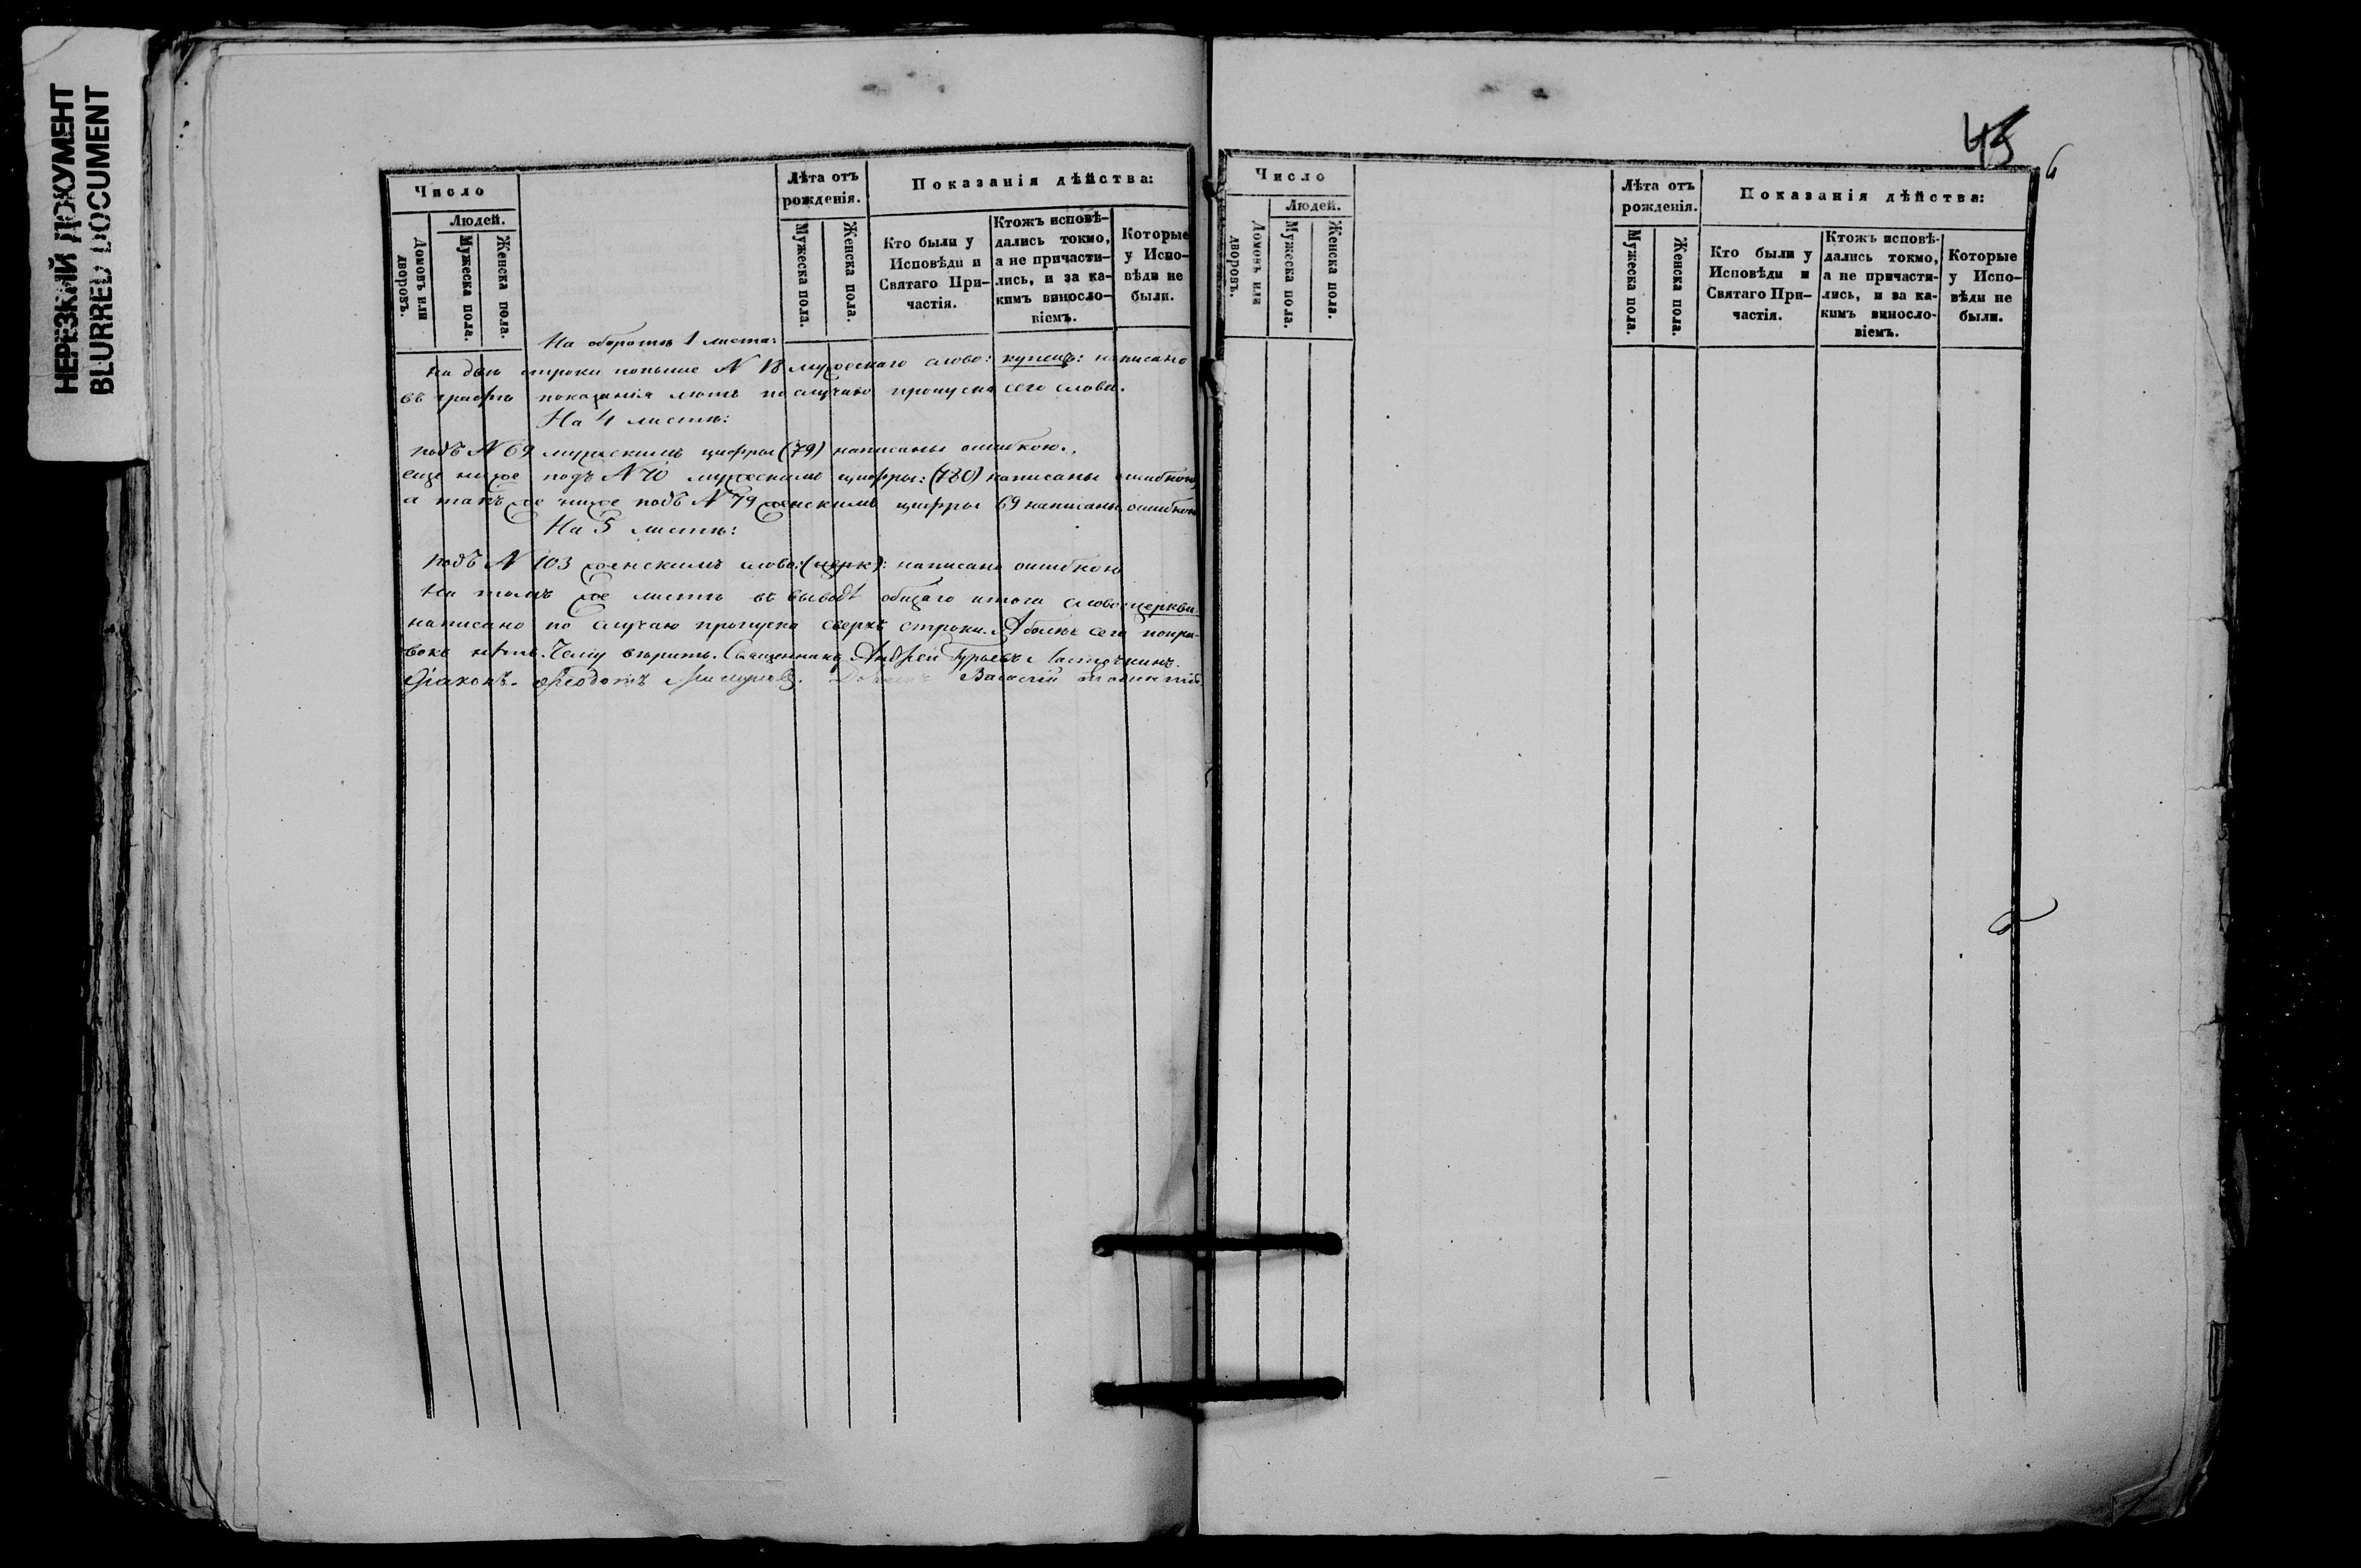 НЕРЕЗКИЙ ДОКУМЕНТ
BLURRED DOCUMENT
Число
Людей.
Домовъ или дворовъ.
Мужеска пола.
Женска пола.
Лѣта отъ рожденія.
Мужеска пола.
Женска пола.
Показанія дѣйства:
Кто были у Исповѣди и Святаго При-
частія.
Ктожъ исповѣ-
дались токмо,
а не причасти-
лись, и за ка-
кимъ виносло-
віемъ.
Которые
у Испо-
вѣди не
были.
На оборотѣ 1 листа:
На двѣ строки повыше N 18 мужескаго слово: купецъ: написано
въ графѣ показанія лѣтъ по случаю пропуска сего слова.
На 4 листѣ:
подъ N 69 мужескимъ цифры (79) написаны ошибкою.,
еще ниже подъ N 70 мужескимъ цифры: (780) написаны ошибкою,
а такъ же ниже подъ N 79 женскимъ цифры 69 написаны ошибкою
На 5 листѣ:
подъ N 103 женскимъ слово: (церк): написано ошибкою
На томъ же листѣ въ выводѣ общаго итога слово: церкви
написано по случаю пропуска сверхъ строки. А болѣе сего попра-
вокъ нѣтъ. Чему вѣрить. Священникъ Андрей Гурьевъ Ласточкинъ.
Діаконъ Ѳеодотъ Василій
45
6
Число
Людей.
Домовъ или дворовъ.
Мужеска пола.
Женска пола.
Лѣта отъ рожденія.
Мужеска пола.
Женска пола.
Показанія дѣйства:
Кто были у
Исповѣди и
Святаго При-
частія.
Ктожъ исповѣ-
дались токмо,
а не причасти-
лись, и за ка-
кимъ винсло-
віемъ.
Которые
у Испо-
вѣди не
были.